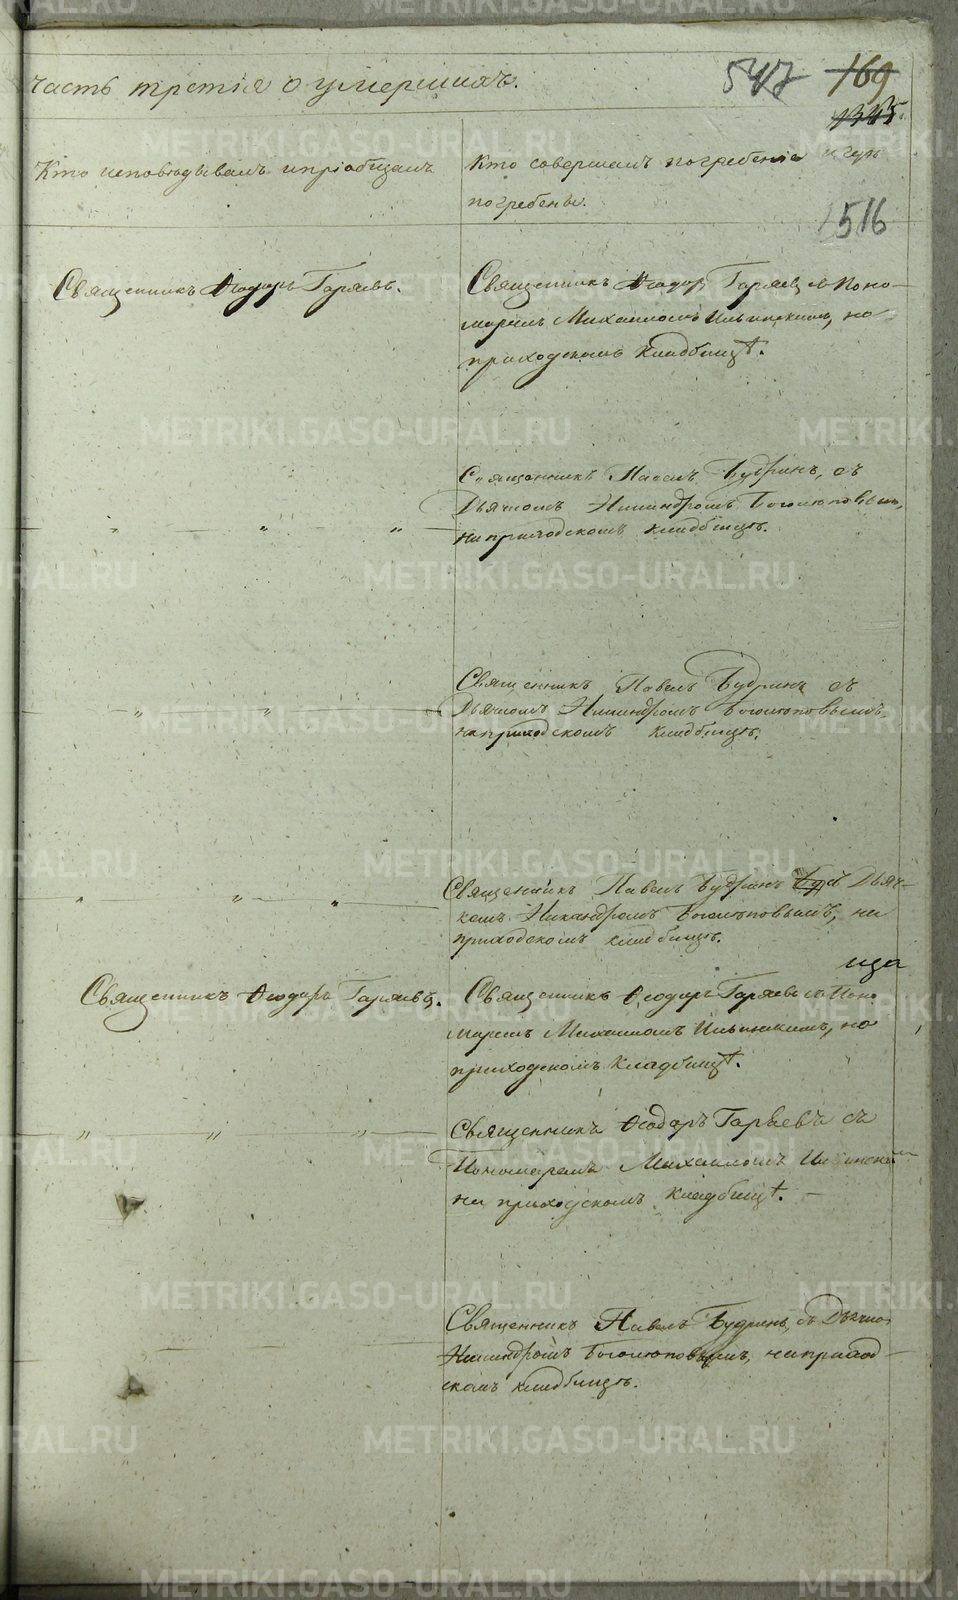 часть третія о умершихъ.
547 169
1345.
516
Кто исповѣдывалъ и пріобщалъ
Кто совершалъ погребеніе и гдѣ
погребены.
Священникъ Ѳеодоръ Гаряевъ.
Священникъ Ѳеодоръ Гаряевъ съ Поно-
маремъ Михаиломъ Ильинскимъ, на
приходскомъ кладбищѣ.
Священникъ Павелъ Будринъ, съ
Дьячкомъ Никандромъ Боголюповымъ,
на приходскомъ кладбищѣ.
Священникъ Павелъ Будринъ съ
Дьячкомъ Никандромъ Боголюповымъ,
на приходскомъ кладбищѣ.
Священникъ Павелъ Будринъ съ Дьяч-
комъ Никандромъ Боголюповымъ, на
приходскомъ кладбищѣ.
Священникъ Ѳеодоръ Гаряевъ.
Священникъ Ѳеодоръ Гаряевъ съ Поно-
маремъ Михаиломъ Ильинскимъ, на
приходскомъ кладбищѣ.
Священникъ Ѳеодоръ Гаряевъ съ
Пономаремъ Михаиломъ Ильинскимъ
на приходскомъ кладбищѣ.
Священникъ Павелъ Будринъ, съ Дьячко
Никандромъ Боголюповымъ, на приход-
скомъ кладбищѣ.
METRIKI.GASO-URAL.RU